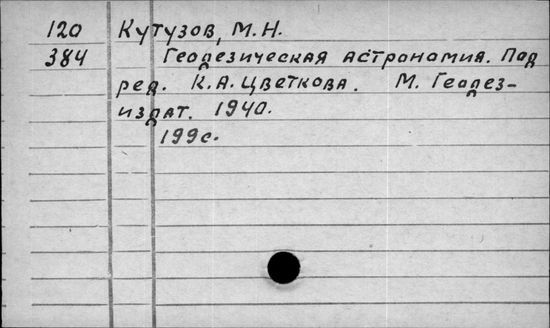 120 Кутузов, М.Н.
384 Геодезическая астрономия. Под
ред. К.А. Цветкова. М. Геодез-
издат. 1940.
199с.